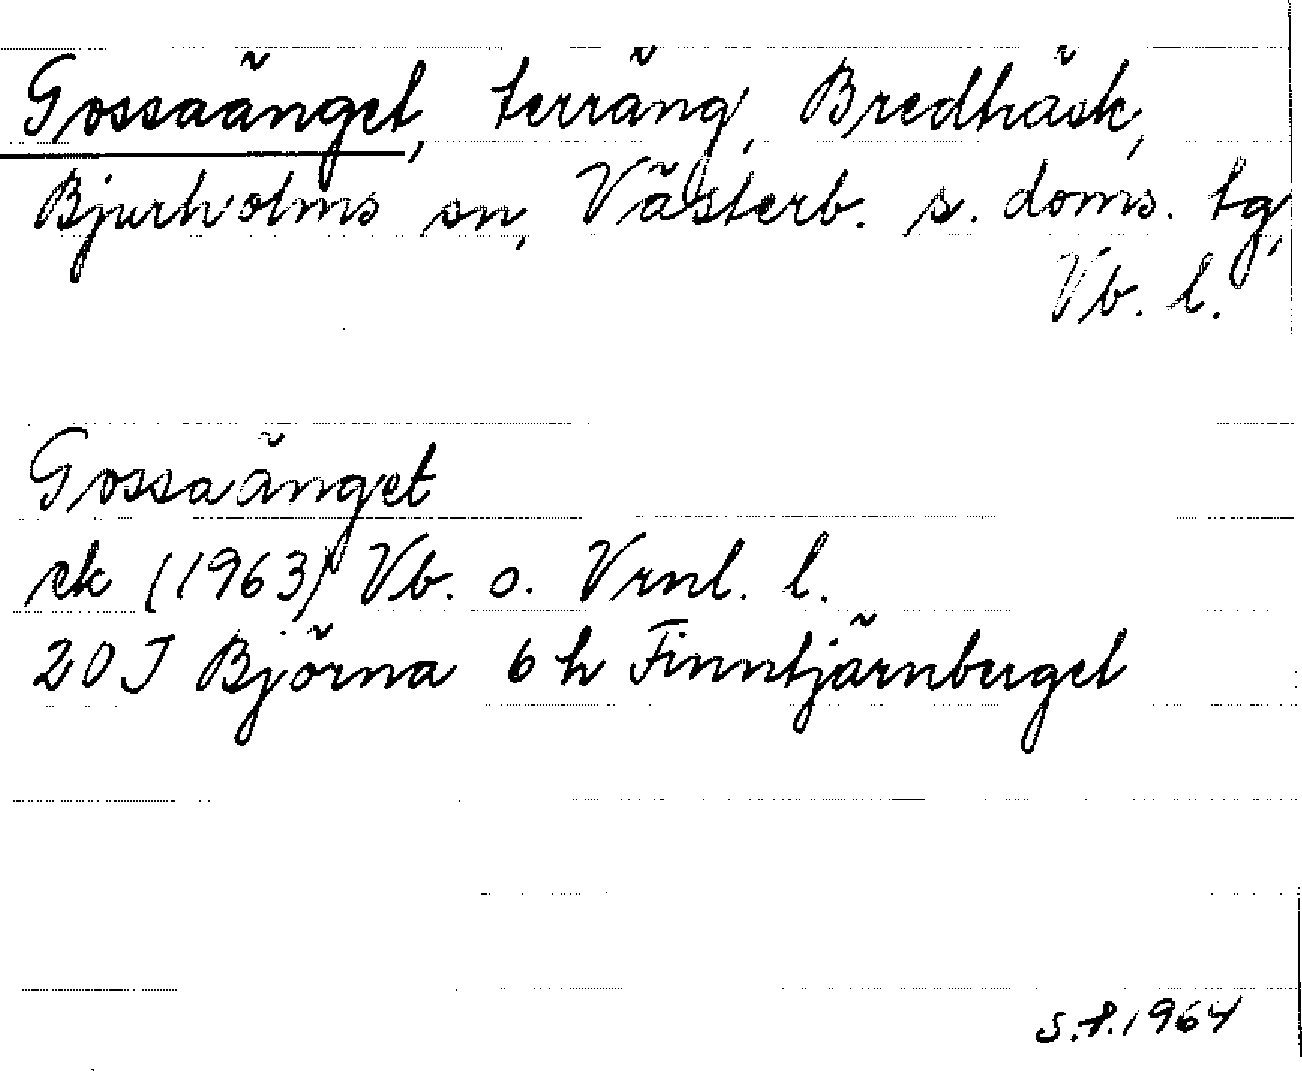 Gossaänget, terräng, Bredträsk,
Bjurholms sn, Västerb. s. doms. tg,
Vb. l.
Gossaänget
ek (1963) Vb. o. Vrnl. l.
20 J Björna 6 h Finntjärnberget
S.f. 1964